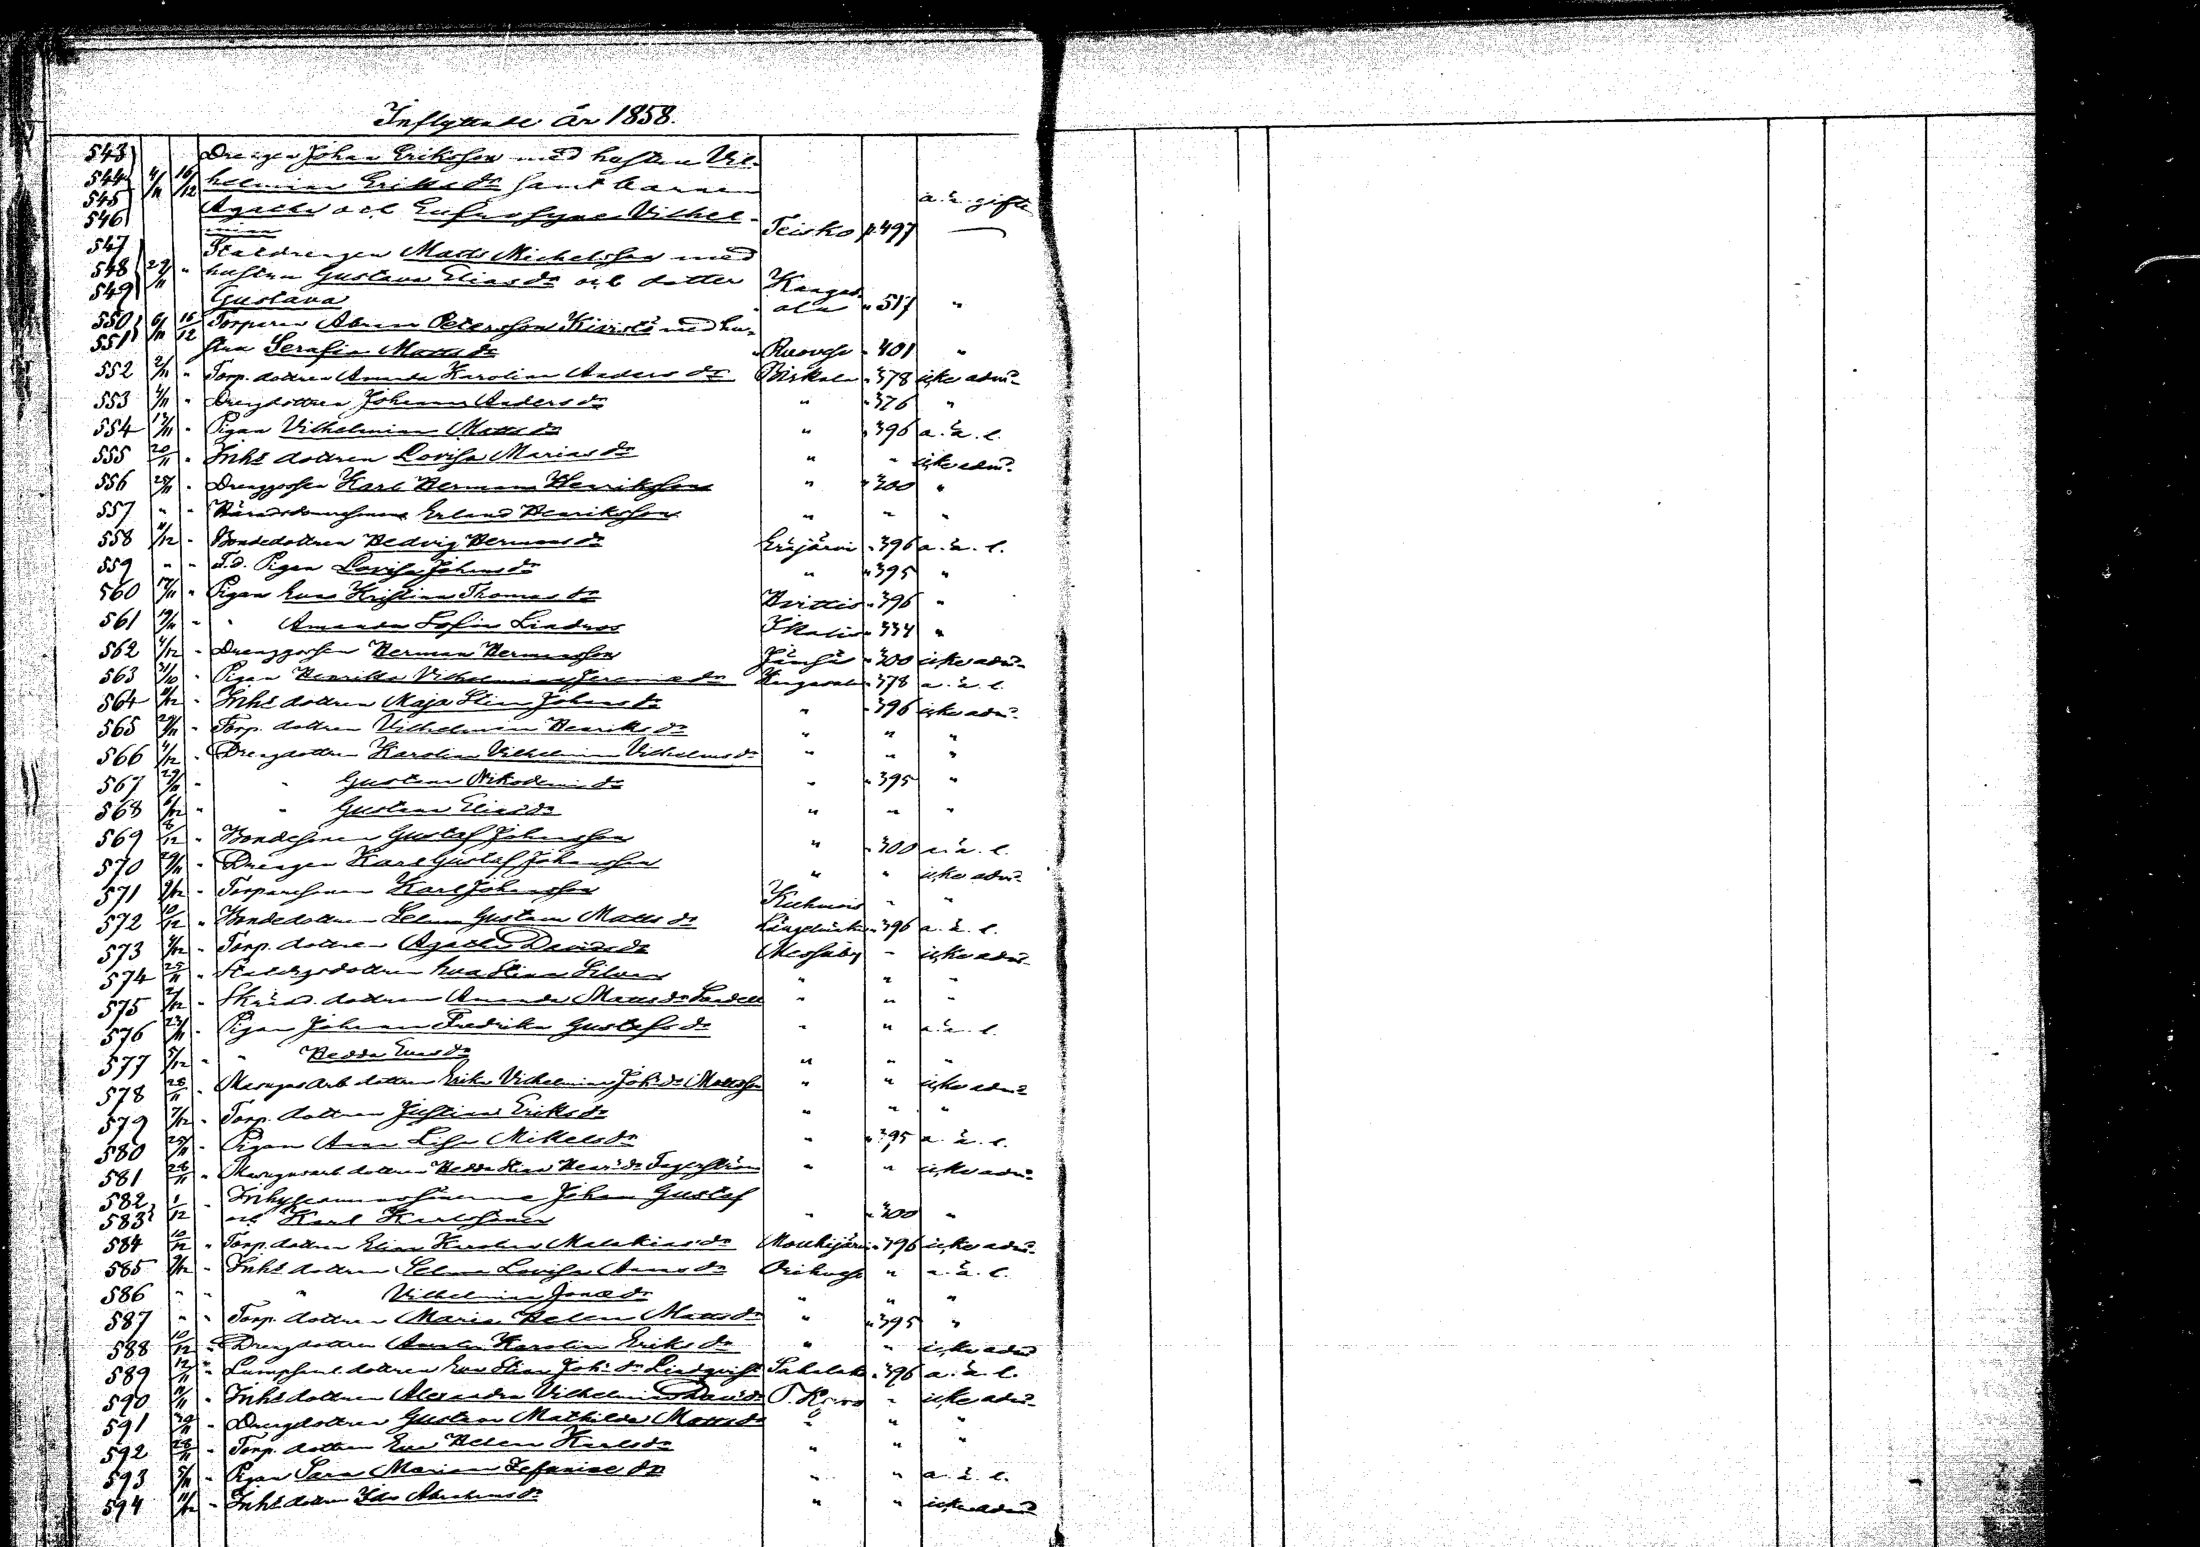 Inflyttade år 1858.
543 Drengen Johan Eriksson med hustru Vil-
544 4/11 16/12 helmina Eriks dr samt barnen
545 Agatha och Eufrosyne Vilhel- a. ä. gifte
546 mina Teisko p. 497
547 Statdrengen Matts Michelsson med
548 27/11 " hustru Gustava Elias dr och dotter Kangas-
549 Gustava ala " 517 "
550 6/11 16/12 Torparen Abram Petersson Kivistö med hu-
551 stru Serafia Matts dr Ruovesi " 401 "
552 2/11 " Torp. dottren Amanda Karolina Anders dr Birkala " 378 icke adm.
553 4/11 " Drengdottren Johanna Anders dr " " 376 "
554 13/11 " Pigan Vilhelmina Matts dr " " 396 a. ä. l.
555 20/11 " Inhs dottren Lovisa Marias dr " " icke adm.
556 25/11 " Drenggossen Karl Herman Henriksson " " 300 "
557 " " Erland Henriksson " " "
558 11/12 " Bondedottren Hedvig Hermans dr Eräjärvi " 396 a. ä. l.
559 " " F.d. Pigan Lovisa Johans dr " " 395 "
560 17/11 " Pigan Eva Kristina Thomas dr Hvittis " 396 "
561 19/11 " " Amanda Sofia Lindroos Ikalis " 334 "
562 4/12 " Drenggossen Herman Hermansson Jämsä " 300 icke adm.
563 31/10 " Pigan Henrika Vilhelmina Jeremias dr Kangasala " 378 a. ä. l.
564 " Inhs dottren Maja Stina Johans dr " " 396 icke adm.
565 " Torp. dottren Vilhelmina Henriks dr " " "
566 4/12 " Drengdottren Karolina Vilhelmina Vilhelms dr " " "
567 29/11 " " Gustava Nikodemi dr " " 395 "
568 6/12 " " Gustava Elias dr " " "
569 8/12 " Bondesonen Gustaf Johansson " " 300 a. ä. l.
570 29/11 " Drengen Karl Gustaf Johansson " " icke adm.
571 9/12 " Torparesonen Karl Johansson Kuhmois " "
572 10/12 " Bondedottren Selma Gustava Matts dr Längelmäki " 396 a. ä. l.
573 " Torp. dottren Agatha Davids dr Messuby " icke adm.
574 25/11 " dottren Eva Stina Silven " " "
575 2/12 " Skrädd. dottren Amanda Matts dr Sandell " " "
576 23/11 " Pigan Johanna Fredrika Gustafs dr " " a. ä. l.
577 5/12 " " Hedda Evas dr " " "
578 28/11 " Masugnsarb. dottren Erika Vilhelmina Joh. dr Mattsson " " icke adm.
579 7/12 " Torp. dottren Justina Eriks dr " " "
580 25/11 " Pigan Anna Lisa Mikels dr " " 395 a. ä. l.
581 28/11 " Masugnsarb. dottren Hedda Stina Henr. dr Fagerström " " icke adm.
582 1/12 " Johan Gustaf
583 och Karl Karlssöner " " 300 "
584 10/12 " Torp. dottren Elina Karolina Malakias dr Mouhijärvi " 396 icke adm.
585 9/12 " Inhs dottren Selma Lovisa Annas dr Orihvesi " a. ä. l.
586 " " " Vilhelmina Jonæ dr " " "
587 " " Torp. dottren Maria Helena Matts dr " " 395 "
588 10/12 " Drengdottren Amalia Karolina Eriks dr " " icke adm.
589 12/11 " dottren Eva Stina Joh. dr Lindqvist Sahalaks " 396 a. ä. l.
590 11/11 " Inhs dottren Alexandra Vilhelmina Davids dr T. Kyro " icke adm.
591 29/11 " Drengdottren Gustava Mathilda Matts dr " " "
592 28/11 " Torp. dottren Eva Helena Karls dr " " "
593 5/11 " Pigan Sara Maria Zefaniae dr " " a. ä. l.
594 11/12 " Inhs dottren Ida Abrahams dr " " icke adm.